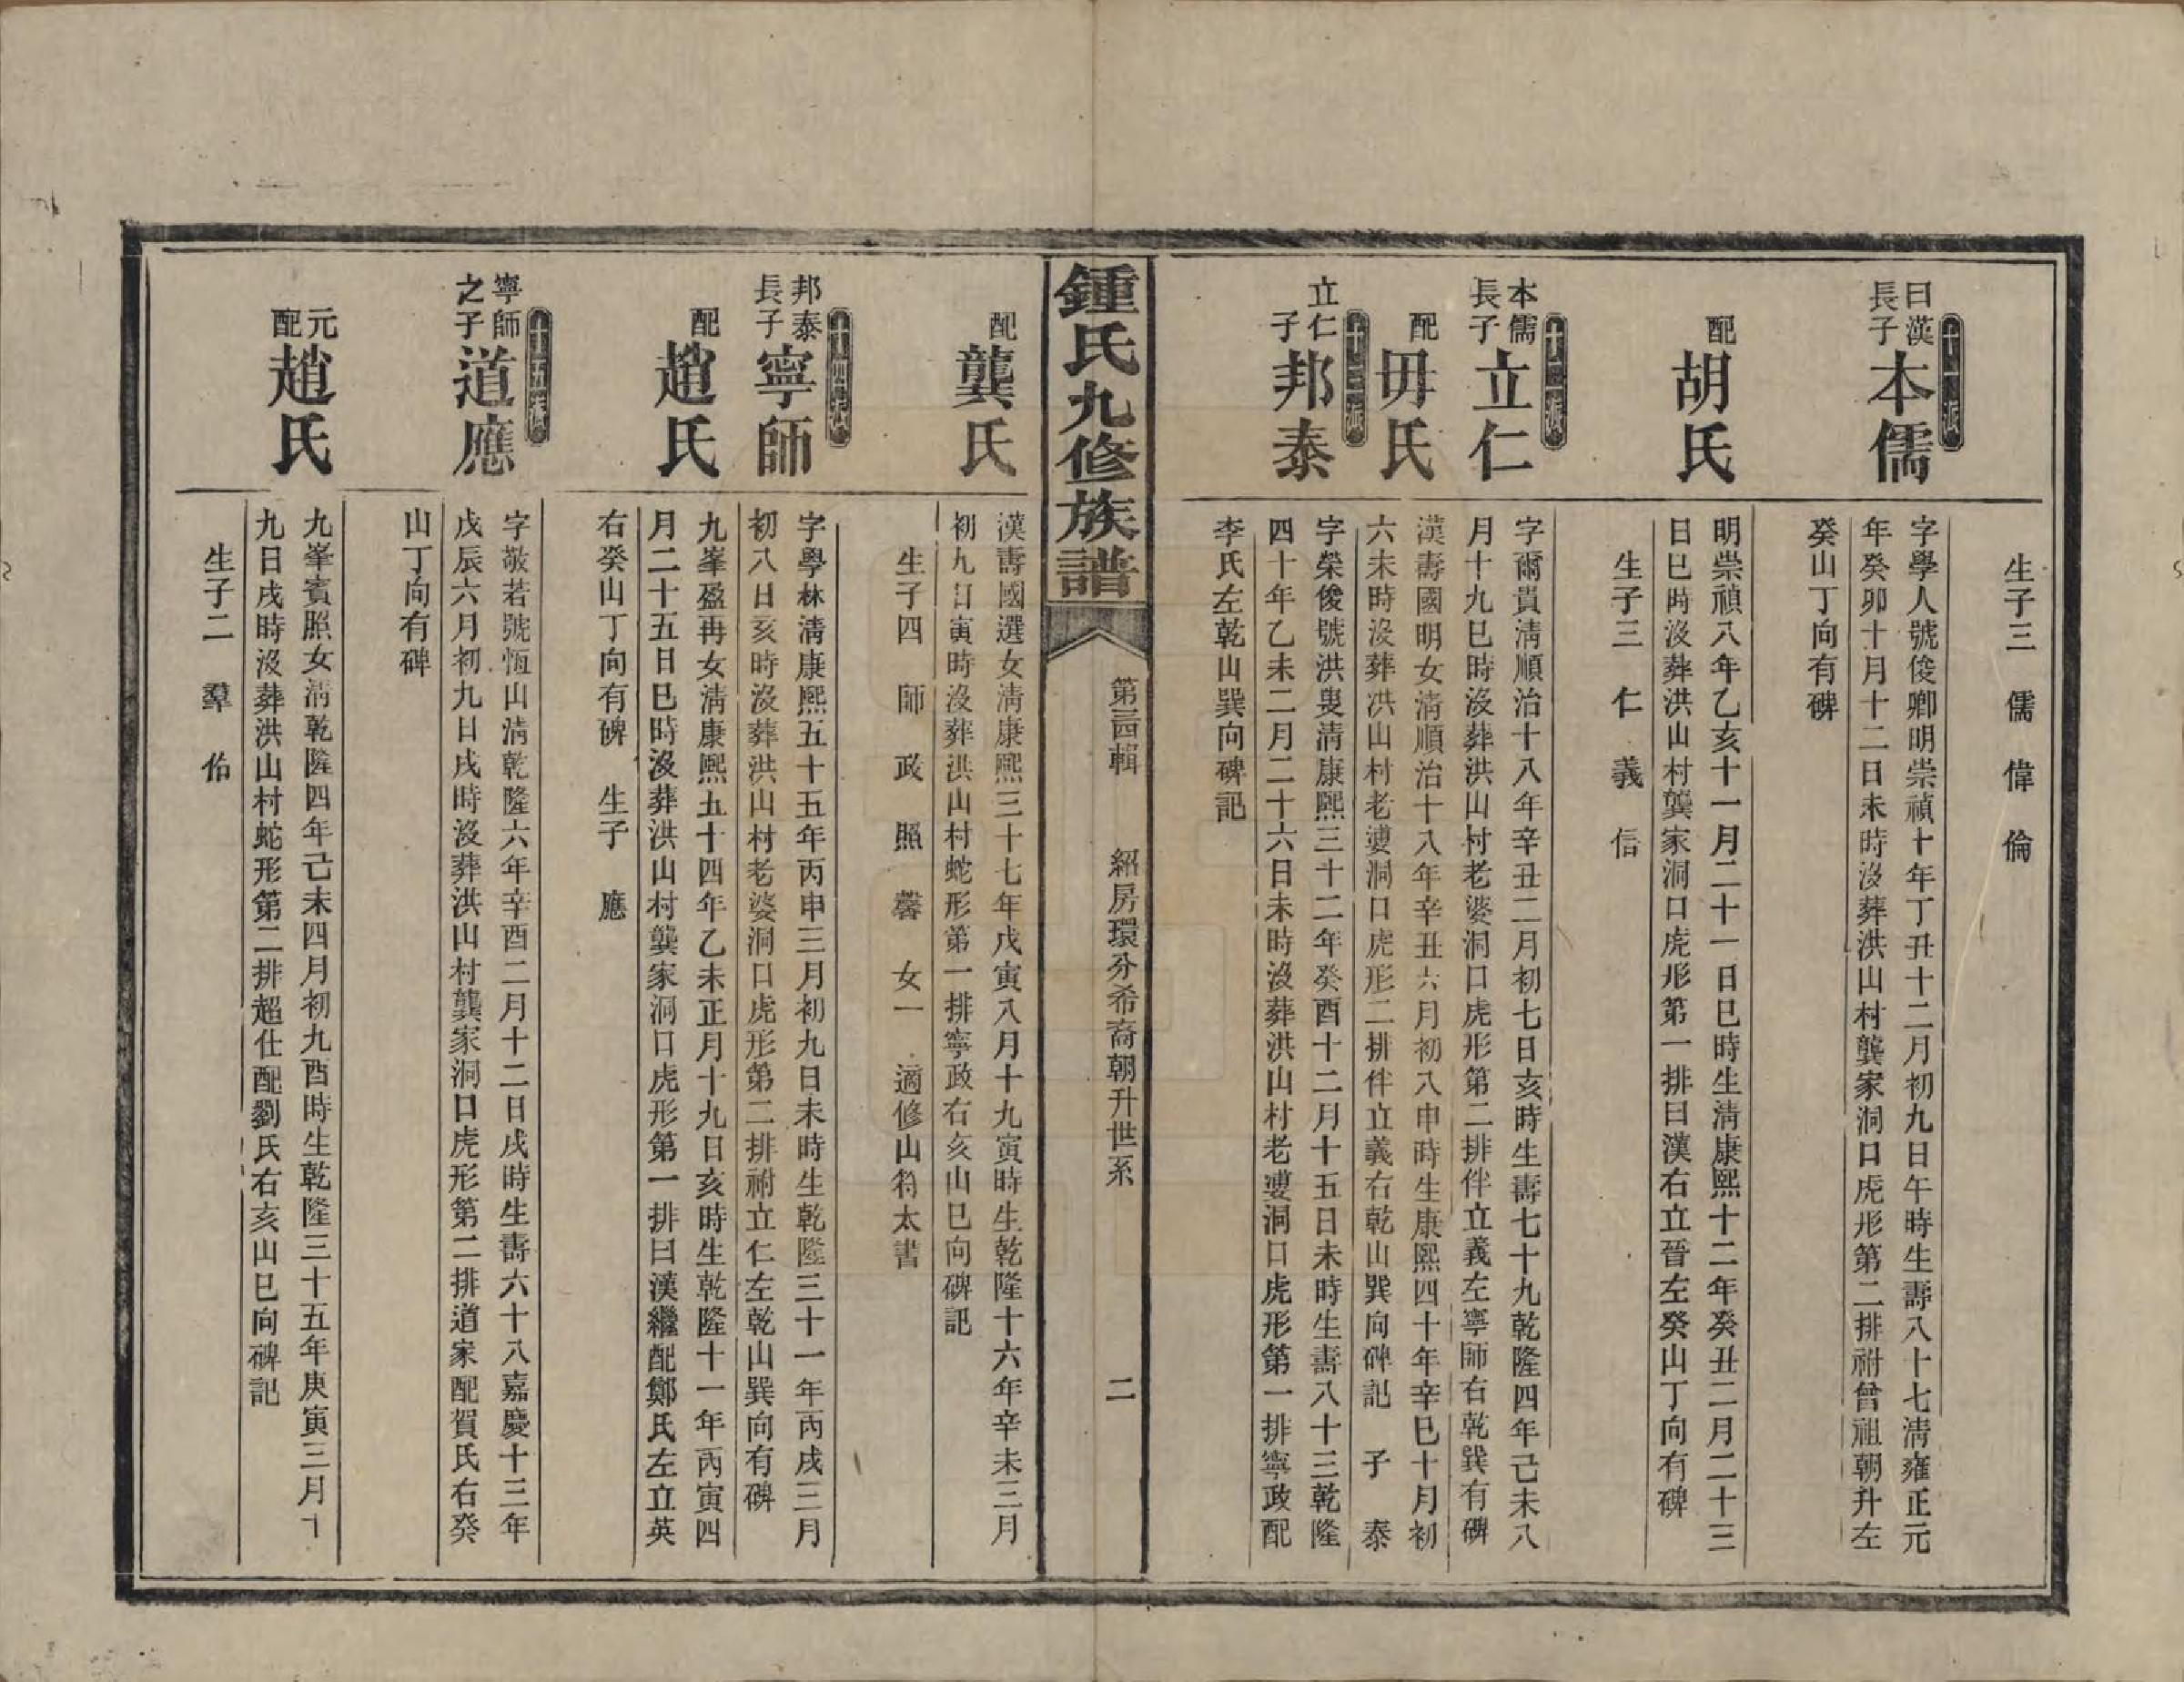 生子三　儒　偉　倫
十一派
曰漢長子
本儒
字學人號俊卿明崇禎十年丁丑十二月初九日午時生壽八十七清雍正元
年癸卯十月十二日未時沒葬洪山村龔家洞口虎形第二排祔曾祖朝升左
癸山丁向有碑
配
胡氏
明崇禎八年乙亥十一月二十一日巳時生清康熙十二年癸丑二月二十三
日巳時沒葬洪山村龔家洞口虎形第一排曰漢右立晉左癸山丁向有碑
生子三　仁　義　信
十二派
本儒長子
立仁
字爾貴清順治十八年辛丑二月初七日亥時生壽七十九乾隆四年己未八
月十九巳時沒葬洪山村老婆洞口虎形第二排伴立義左寧師右乾巽有碑
配
毋氏
漢壽國明女清順治十八年辛丑六月初八申時生康熙四十年辛巳十月初
六未時沒葬洪山村老婆洞口虎形二排伴立義右乾山巽向碑記　子　泰
十三派
立仁子
邦泰
字榮俊號洪叟清康熙三十二年癸酉十二月十五日未時生壽八十三乾隆
四十年乙未二月二十六日未時沒葬洪山村老婆洞口虎形第一排寧政配
李氏左乾山巽向碑記
鍾氏九修族譜
第三四輯
紹房環分希裔朝升世系
二
配
龔氏
漢壽國選女清康熙三十七年戊寅八月十九寅時生乾隆十六年辛未三月
初九日寅時沒葬洪山村蛇形第一排寧政右亥山巳向碑記
生子四　師　政　照　馨　女一　適修山符太書
十四派
邦泰長子
寧師
字學林清康熙五十五年丙申三月初九日未時生乾隆三十一年丙戌三月
初八日亥時沒葬洪山村老婆洞口虎形第二排祔立仁左乾山巽向有碑
配
趙氏
九峯盈再女清康熙五十四年乙未正月十九日亥時生乾隆十一年丙寅四
月二十五日巳時沒葬洪山村龔家洞口虎形第一排曰漢繼配鄭氏左立英
右癸山丁向有碑　生子　應
十五派
寧師之子
道應
字敬若號恆山清乾隆六年辛酉二月十二日戌時生壽六十八嘉慶十三年
戊辰六月初九日戌時沒葬洪山村龔家洞口虎形第二排道家配賀氏右癸
山丁向有碑
元配
趙氏
九峯賓照女清乾隆四年己未四月初九酉時生乾隆三十五年庚寅三月十
九日戌時沒葬洪山村蛇形第二排超仕配劉氏右亥山巳向碑記
生子二　羣　佑